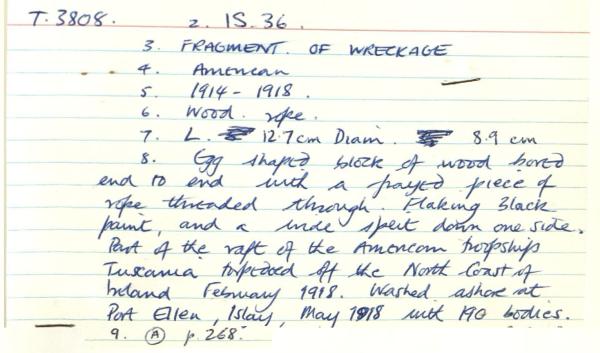 T.3808. 2. IS.36.
3. FRAGMENT OF WRECKAGE
4. American
5. 1914-1918.
6. Wood. rope.
7. L. 12.7cm Diam. 8.9 cm
8. Egg shaped block of wood bored
end to end with a frayed piece of
rope threaded through. Flaking Black
paint, and a wide split down one side.
Part of the raft of the American troopship
Tuscania torpedoed off the North Coast of
Ireland February 1918. Washed ashore at
Port Ellen, Islay, May 1918 with 190 bodies.
9. A p.268.